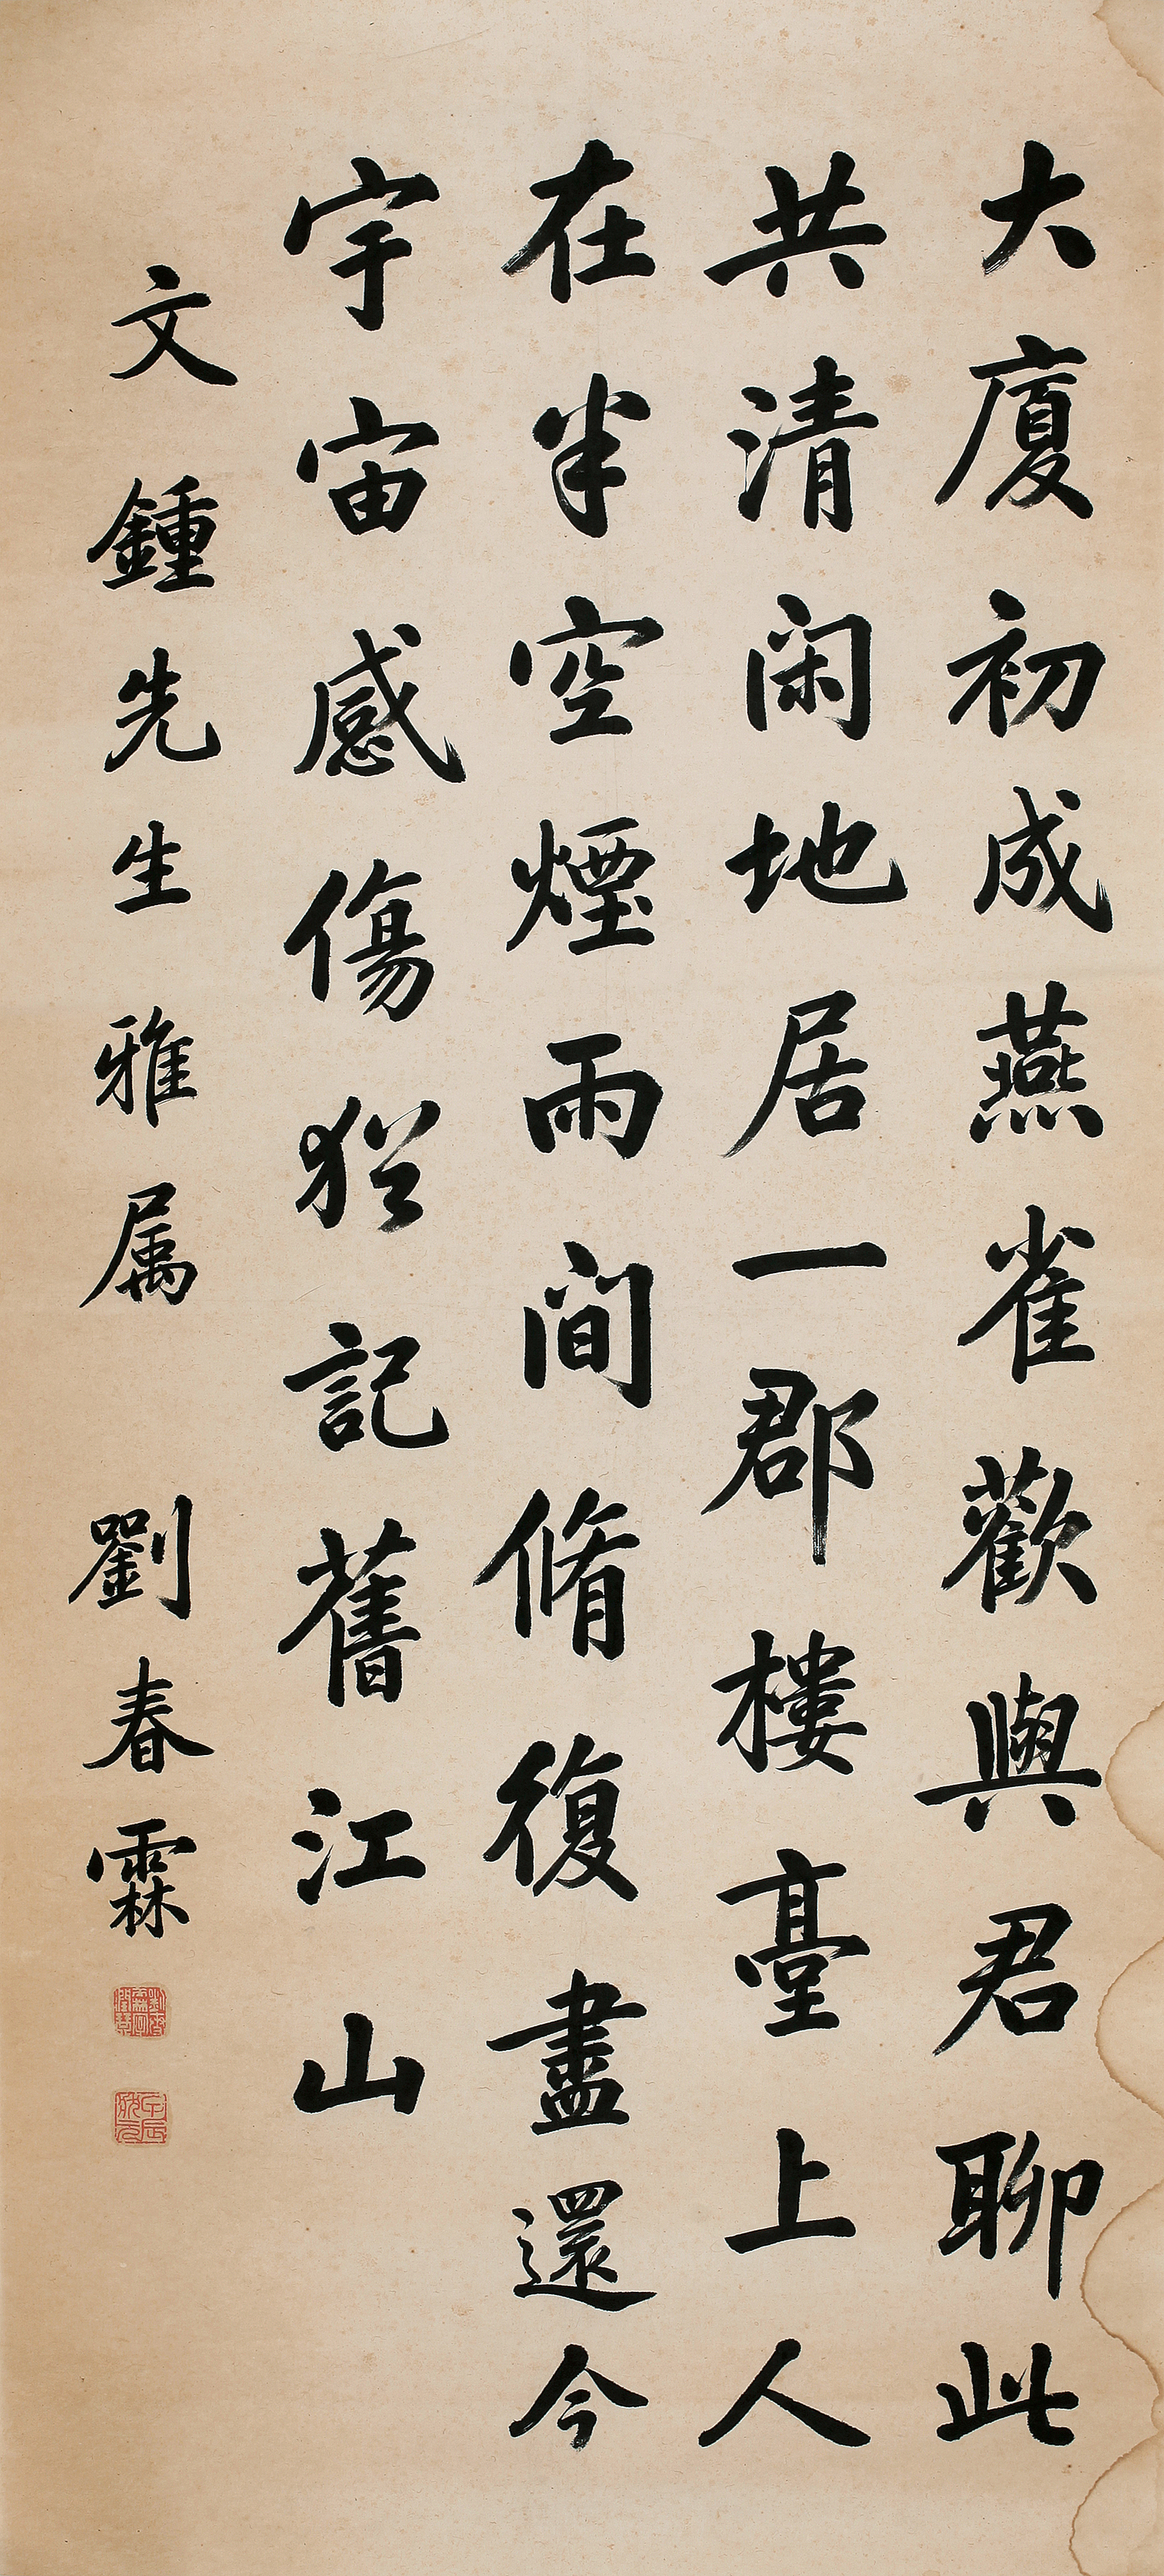 大廈初成燕雀歡與君聊此
共清閑地居一郡樓臺上人
在半空煙雨間脩復盡還今
宇宙感傷猶記舊江山
文鍾先生雅属 劉春霖